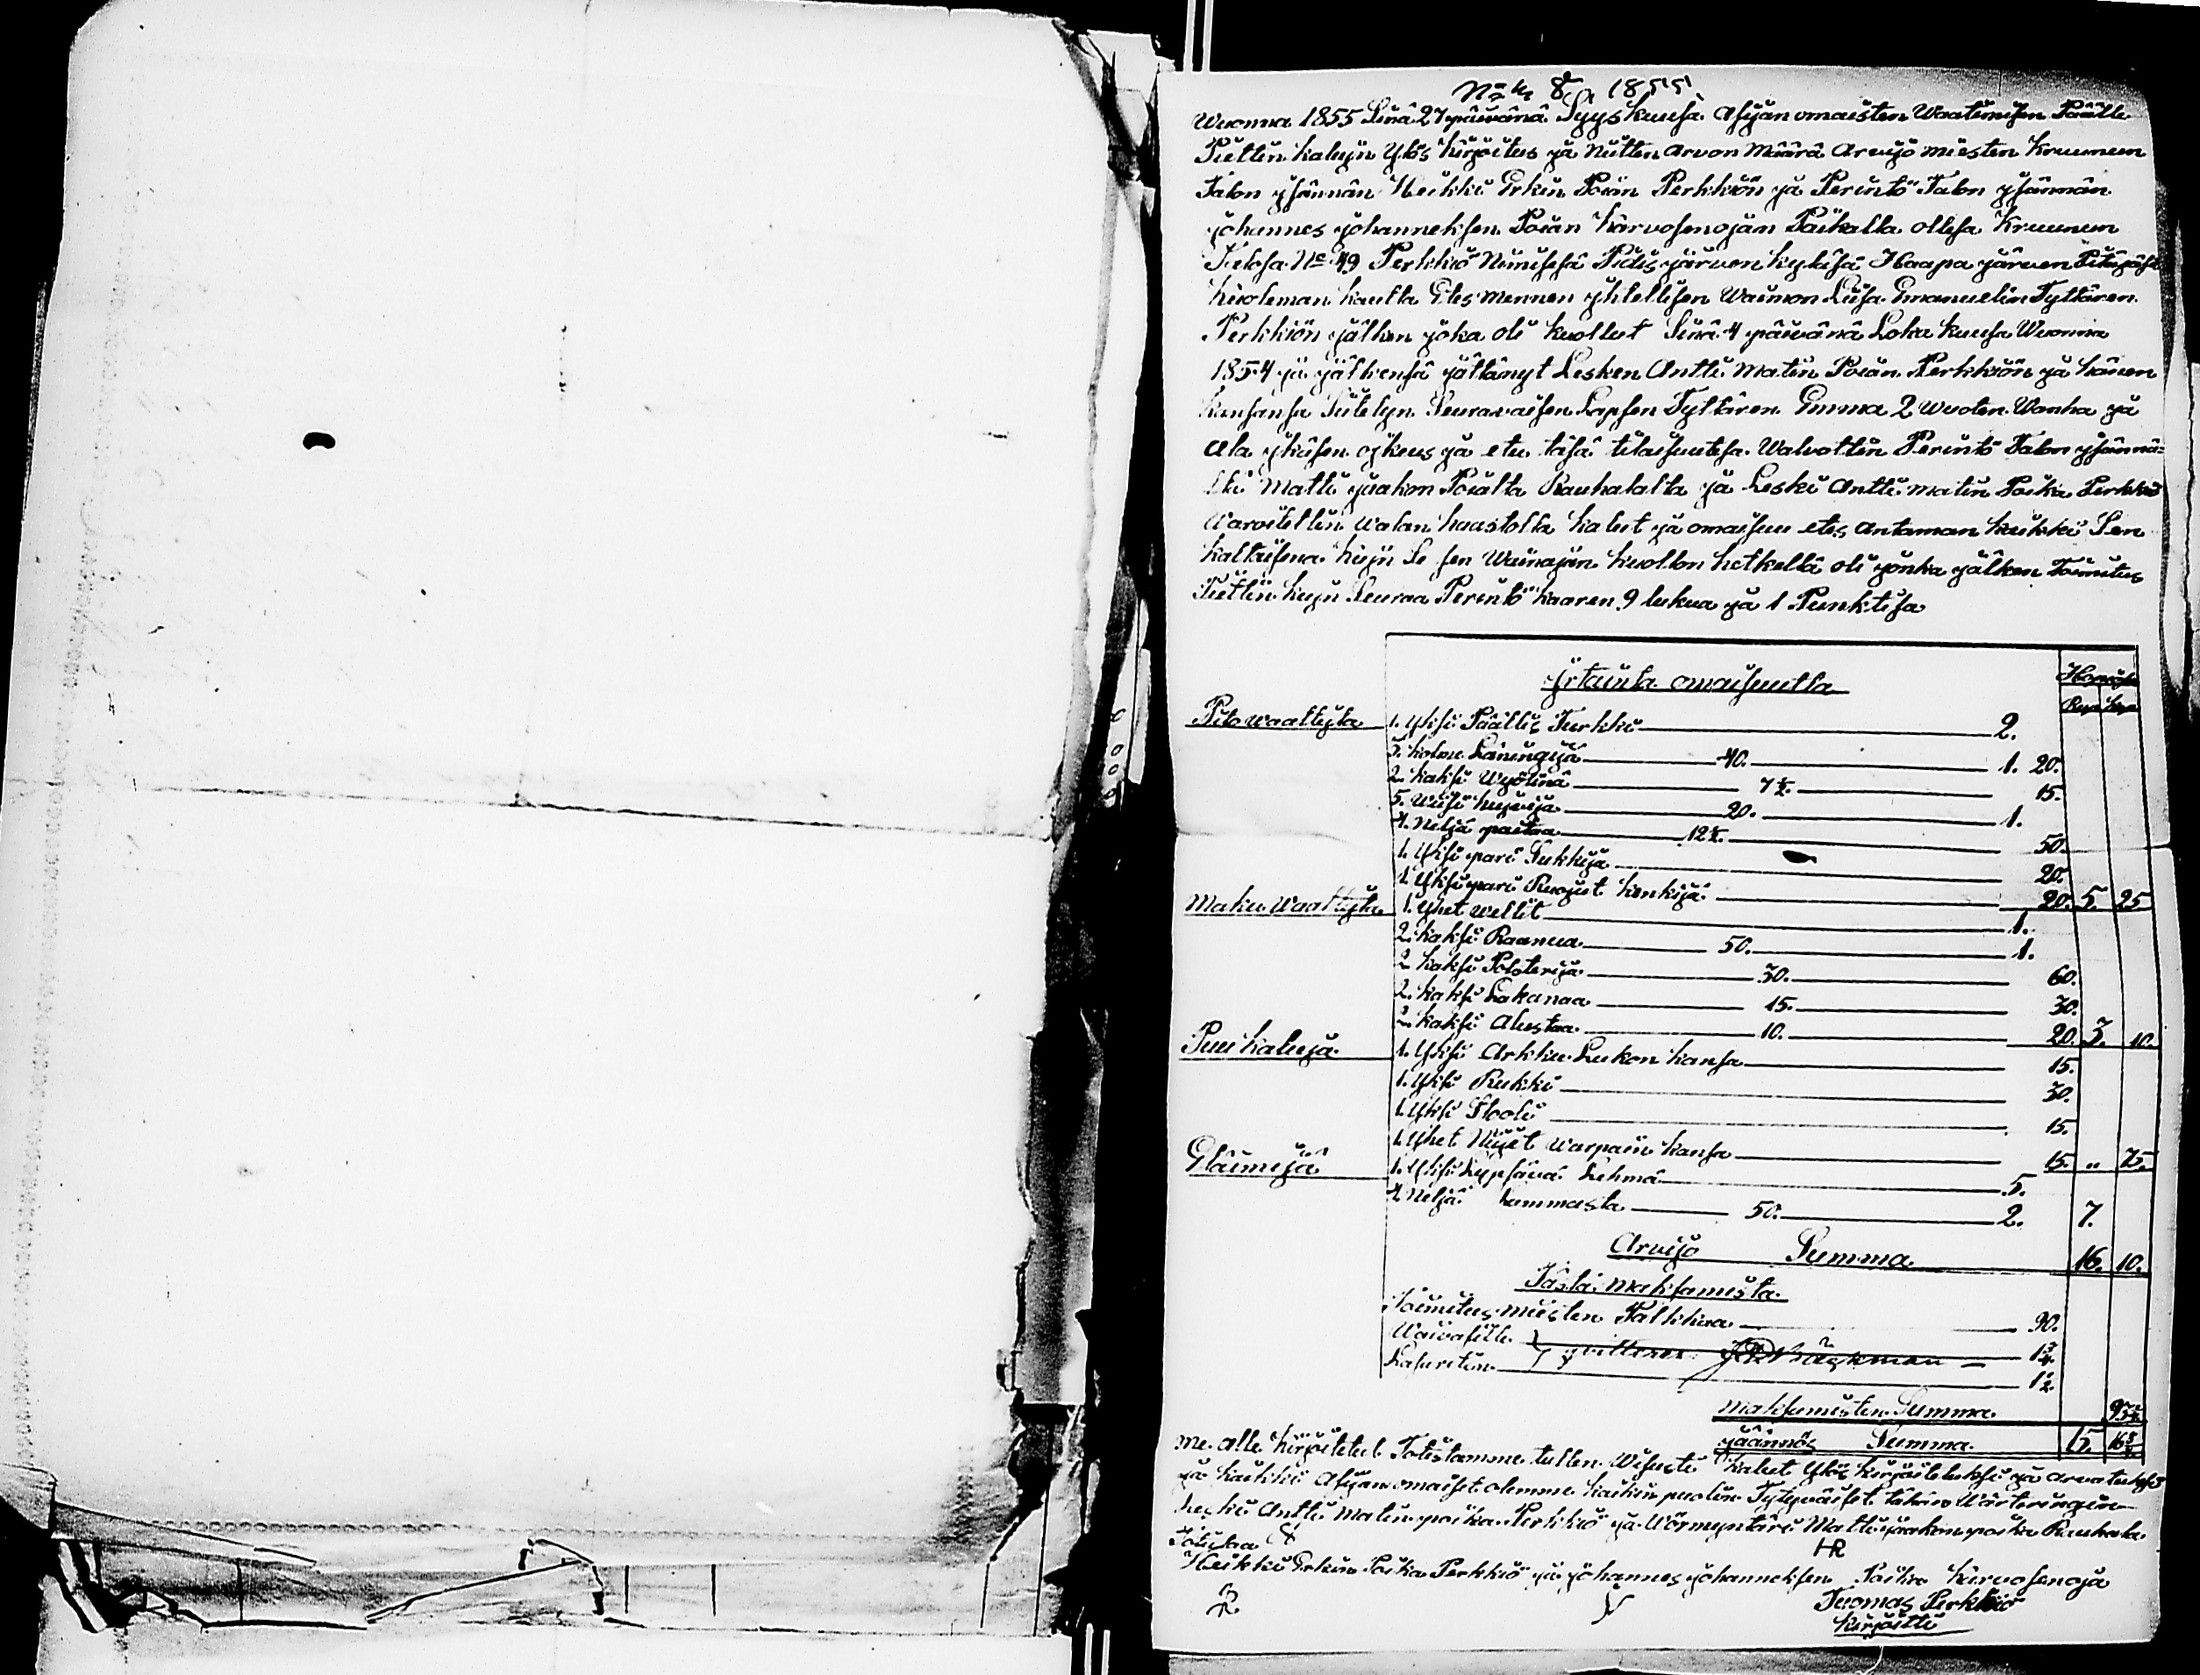 No 8, 1855.
Wuonna 1855 Sinä 27 päivänä Syys kuusa Asijan omaisten Waatimisen Päälle
Piettin kalujn Ylös kirjoitus ja niitten arvon Määrä Arvijo miesten Kruunun
Talon ysännän Heikki Erkin Poian Perkkiön ja Perintö Talon ysännän
johannes johanneksen Poian Kärvosenojan Paikalla ollesa Kruunun
Talosa No 49 Perkkiö Nimisesä Pidisjärven kyläsä Haapa järven Pitäjäsä
kuoleman kautta Edes mennen yhtellisen Waimon Liisa Emanuelin Tyttären
Perkkiön jälken joka oli kuollut Sinä 4 päivänä Loka kuusa Wuonna
1854 ja jälkensä jättänyt Lesken Antti Matin Poian Perkkiön ja hänen
kansansa Siitetyn Seuravaisen Lapsen Tyttären Emma 2 Wuoten Wanha ja
ala ykäisen oikeus ja etu täsä tilaisuutesa Walvottin Perintö Talon ysännä-
ltä Matti jaakon Poialta Rauhalalta ja Leski Antti matin Poika Perkkiö
Waroitettin walan kaustolla kalut ja omaisuu etes antaman kaikki Sen
kaltaisena kujn Se sen Wainajan kuollon hetkellä oli jonka jälken Toimitus
Piettin kujn Seuraa Perintö kaaren 9 lukua ja 1 Punktisa
yrtaista omaisuutta Hopiasa
Rup kop
Pito waattejta 1. Yksi Päällis Turkki 2.
3. kolme Läningijä 40. 1. 20.
2. kaksi Wyölinä 7½. 15.
5. wiisi hujvija 20. 1.
4. Neljä paitaa 12½. 50.
1. Yksi pari Sukkija 20.
1. Yksi pari Ruojut kenkijä 20. 5. 25
Maku Waattejta 1. Yhet wellit 1.
2. kaksi Raanua 50. 1.
2 kaksi Polsterija 30. 60.
2. kaksi Lakanaa 15. 30.
2. kaksi Alustaa 10. 20. 3. 10.
Puu kaluja 1. Yksi Arkku Lukon kansa 15.
1. Yksi Rukki 30.
1. Yksi Stooli 15.
1. Yhet Niijet warpain kansa 15. " 75.
Eläimijä 1. Yksi Lypsävä Lehmä 5.
4. Neljä lammasta 50. 2. 7.
Arvijo Summa 16. 10.
Tästä Maksamista
Toimitus miesten Palkkaa 90.
Waivasille 1¾.
Lasaretin 1½.
maksamisten Summa
jäännös Summa 15.
me alle kirjoitetut Totistamme tullen Wisusti kalut Ylös kirjoitetuksi ja arvatuksi
ja kaikki Asijan omaiset olemme kaikin puolin Tytyväiset tähän Wärteringin
leski Antti Matin poika Perkkiö ja Wörmyntäri Matti jaakon poika Rauhala
Totistaa HR
Heikki Erkin Poika Perkkiö ja johannes johanneksen Poika kärvosenoja
Tuomas Perkkiö
kirjoitti